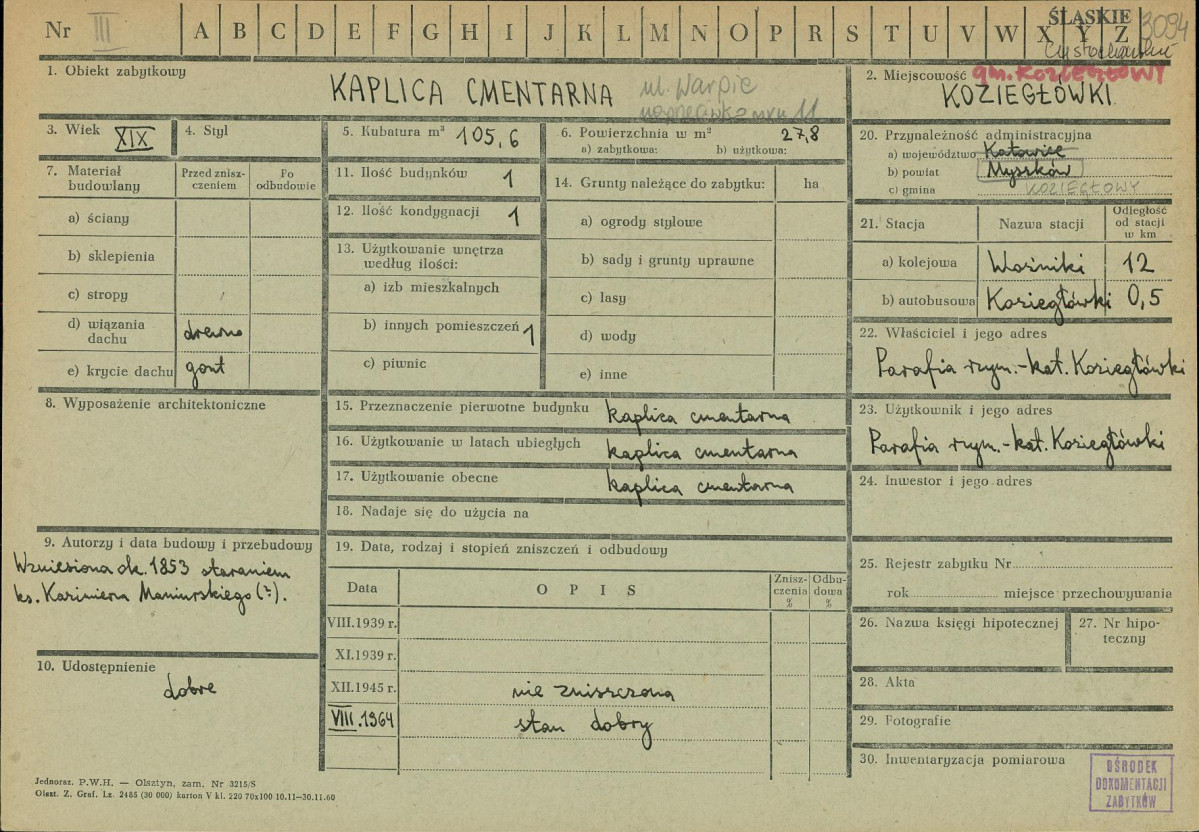 Nr III A B C D E F G H I J K L M N O P R S T U V W X Y Z
ŚLĄSKIE 3094
1. Obiekt zabytkowy
KAPLICA CMENTARNA ul. Warpie
naprzeciwko nru 11
2. Miejscowość gm. KOZIEGŁOWY
KOZIEGŁÓWKI.
3. Wiek XIX
4. Styl
5. Kubatura m³ 105,6
6. Powierzchnia w m² 27,8
a) zabytkowa: b) użytkowa:
7. Materiał budowlany
Przed zniszczeniem
Po odbudowie
a) ściany
b) sklepienia
c) stropy
d) wiązania dachu drewno
e) krycie dachu gont
8. Wyposażenie architektoniczne
9. Autorzy i data budowy i przebudowy
Wzniesiona ok. 1853 staraniem
ks. Kazimierza (?).
10. Udostępnienie
dobre
11. Ilość budynków 1
12. Ilość kondygnacji 1
13. Użytkowanie wnętrza
według ilości:
a) izb mieszkalnych
b) innych pomieszczeń 1
c) piwnic
14. Grunty należące do zabytku: ha
a) ogrody stylowe
b) sady i grunty uprawne
c) lasy
d) wody
e) inne
15. Przeznaczenie pierwotne budynku kaplica cmentarna
16. Użytkowanie w latach ubiegłych kaplica cmentarna
17. Użytkowanie obecne kaplica cmentarna
18. Nadaje się do użycia na
19. Data, rodzaj i stopień zniszczeń i odbudowy
Data OPIS Zniszczenia % Odbudowa %
VIII.1939 r.
XI.1939 r.
XII.1945 r. nie zniszczona
VIII.1964 stan dobry
20. Przynależność administracyjna
a) województwo Katowice
b) powiat Myszków
c) gmina KOZIEGŁOWY
21. Stacja Nazwa stacji Odległość od stacji w km
a) kolejowa Woźniki 12
b) autobusowa Koziegłówki 0,5
22. Właściciel i jego adres
Parafia rzym.-kat. Koziegłówki
23. Użytkownik i jego adres
Parafia rzym.-kat. Koziegłówki
24. Inwestor i jego adres
25. Rejestr zabytku Nr
rok miejsce przechowywania
26. Nazwa księgi hipotecznej
27. Nr hipoteczny
28. Akta
29. Fotografie
30. Inwentaryzacja pomiarowa
OŚRODEK
DOKUMENTACJI
ZABYTKÓW
Jednoraz. P.W.H. — Olsztyn, zam. Nr 3215/S
Olszt. Z. Graf. Lz. 2485 (30 000) karton V kl. 220 70x100 10.11—30.11.60